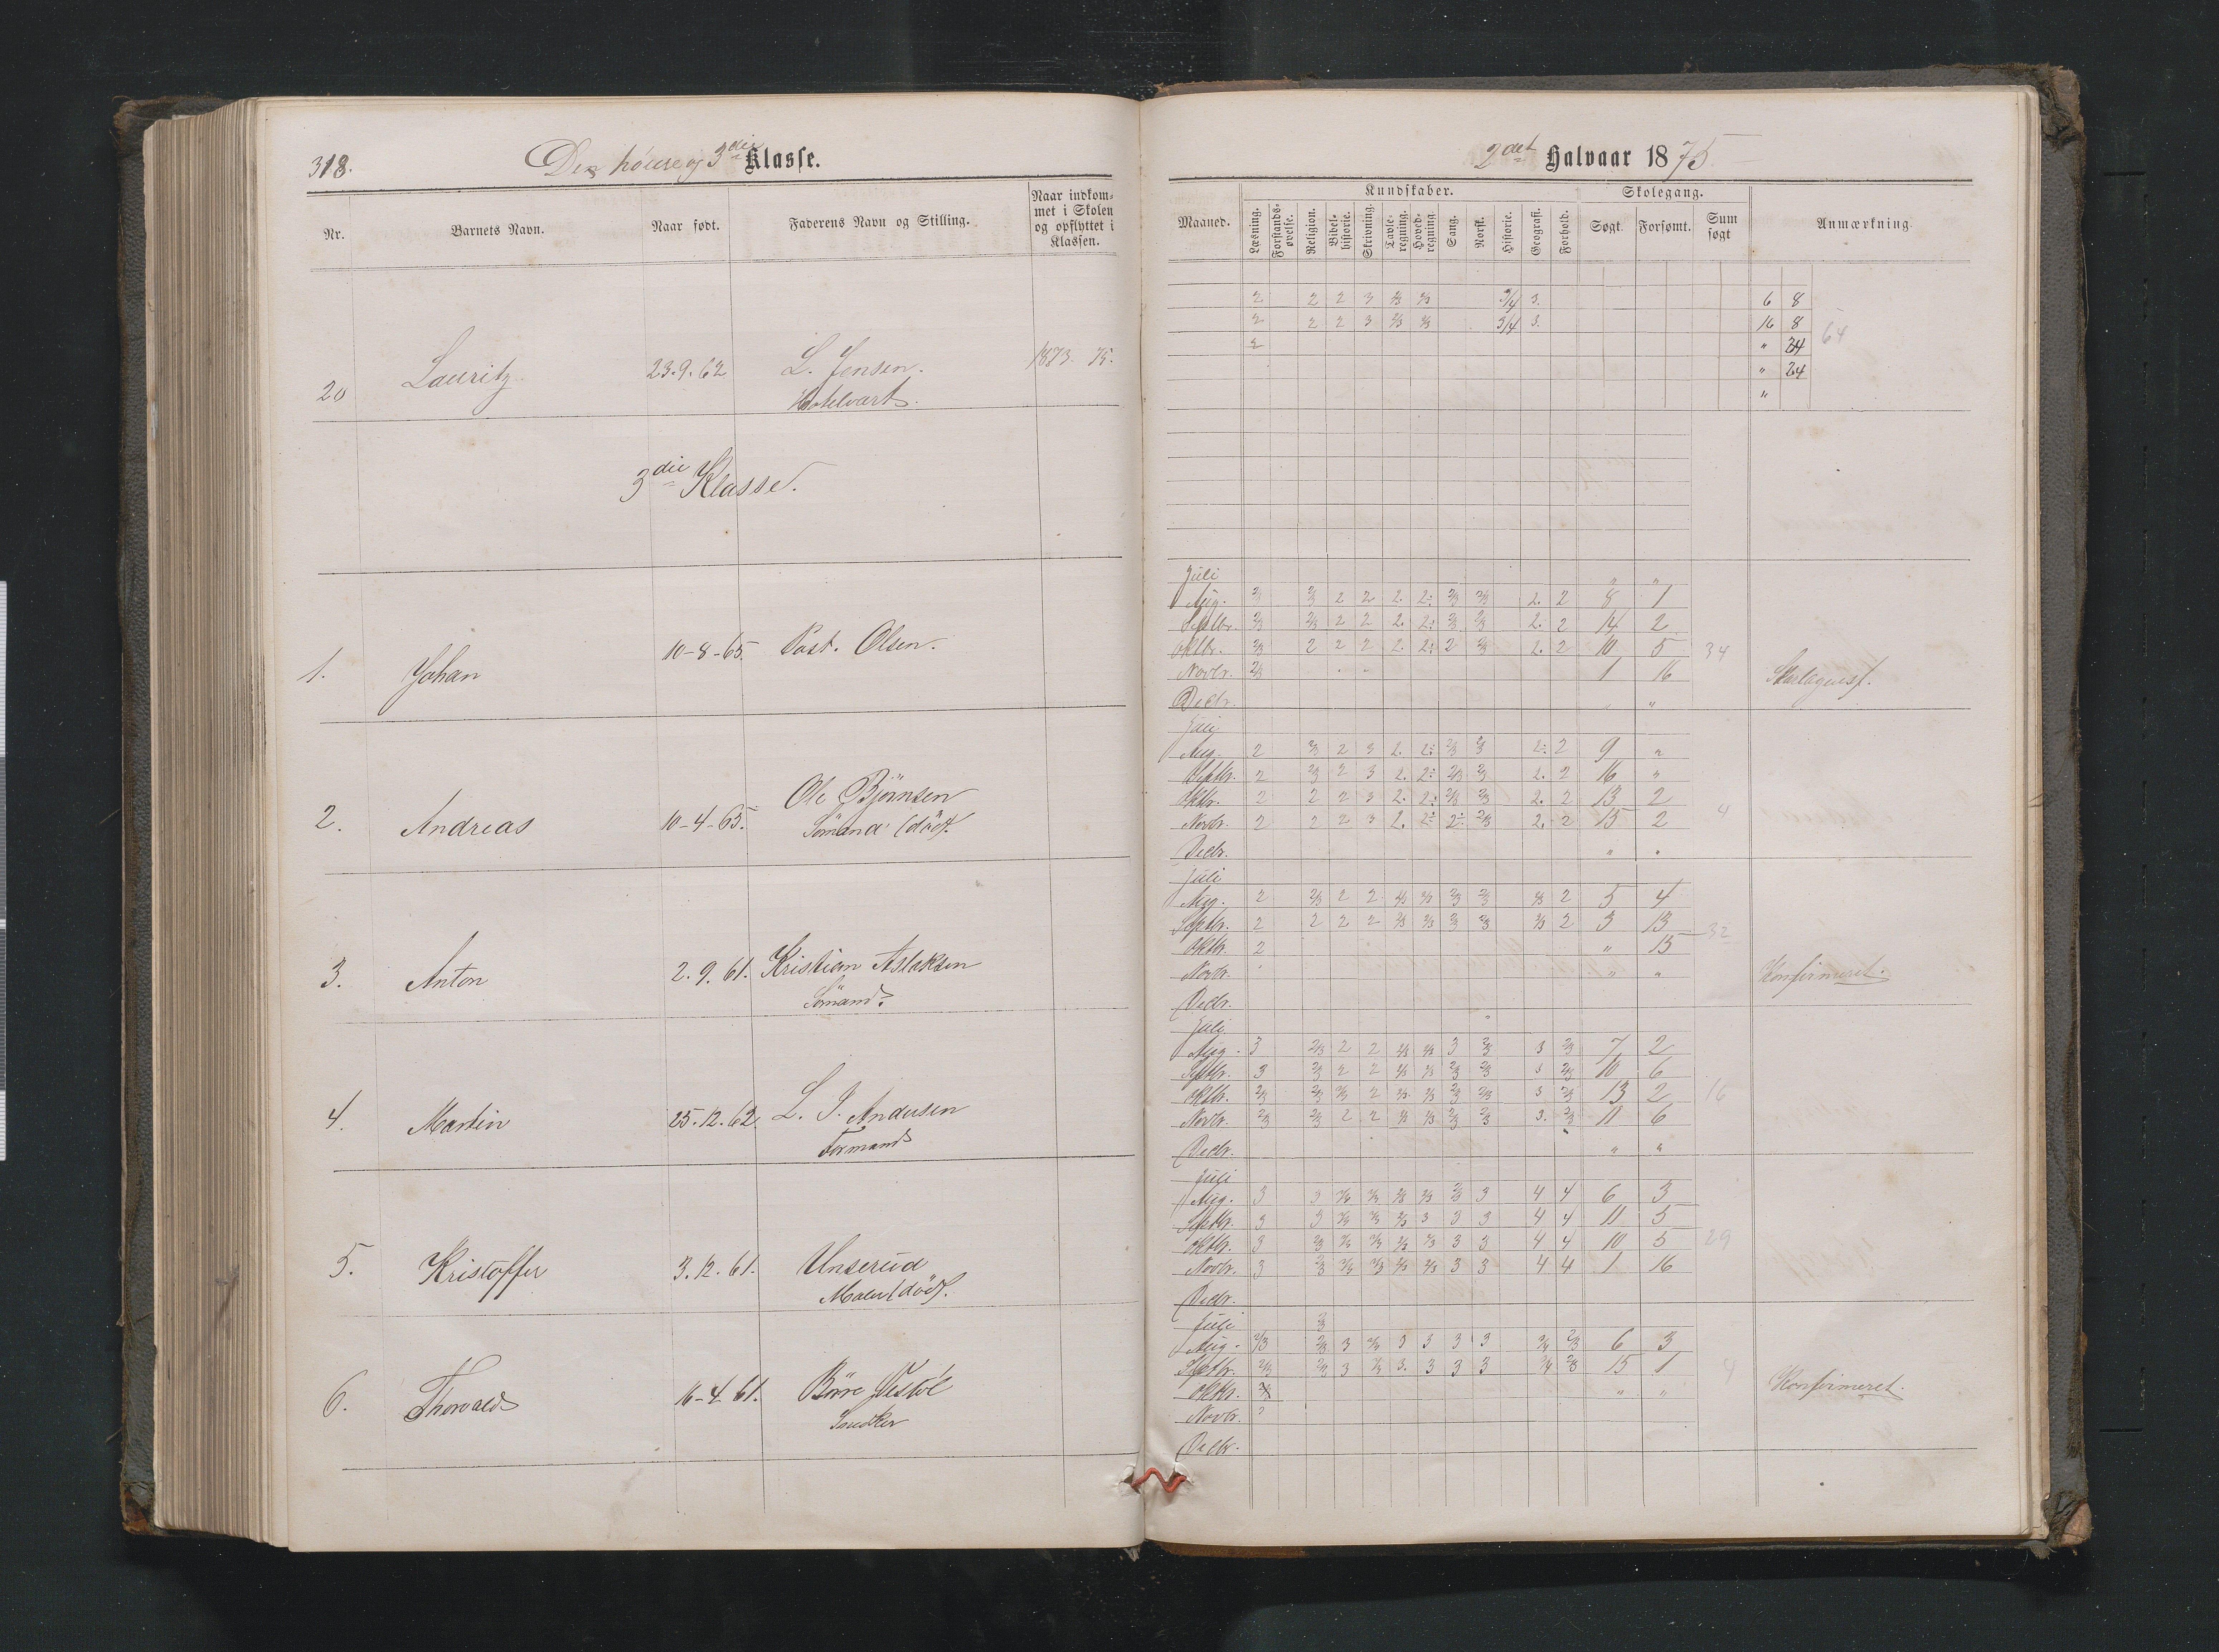 318.
Den høiere og 3die Klasse.
Nr.
Barnets Navn.
Naar født.
Faderens Navn og Stilling.
Naar indkom-
met i Skolen
og opflyttet i
Klassen.
20 Lauritz 23.9.62 L. Jensen. 1873. 75.
Hotelvært.
3die Klasse.
1. Johan 10-8-65 Olsen.
2. Andreas 10-4-65. Ole Bjørnsen
Sømand (død).
3. Anton 2.9.61. Kristian Aslaksen
Sømand.
4. Martin 25.12.62. L. J. Andersen
Formand
5. Kristoffer 3.12.61. Unserud
Maler (død).
6. Thorvald 16-4-61. Børre Vestøl
Snedker
2det Halvaar 1875.
Maaned.
Kundskaber.
Læsning.
Forstands-
øvelse.
Religion.
Bibel-
historie.
Skrivning.
Tavle-
regning.
Hoved-
regning.
Sang.
Norsk.
Historie.
Geografi.
Forhold.
Skolegang.
Søgt.
Forsømt.
Sum
søgt
Anmærkning.
2 2 2 3 2/3 2/3 3/4 3. 6 8
2 2 2 3 2/3 2/3 3/4 3. 16 8 64
2 " 24
" 24
"
Juli " "
Aug. 2/3 2/3 2 2 2. 2: 2/3 2/3 2. 2 8 1
Septbr. 2/3 2/3 2 2 2. 2: 2/3 2/3 2. 2 14 2
Oktbr. 2/3 2 2 2 2. 2: 2 2/3 2. 2 10 5 34
Novbr. 2/3 1 16 Skarlagensf.
Decbr. " "
Juli
Aug. 2 2/3 2 3 2. 2: 2/3 2/3 2: 2 9 "
Septbr. 2 2/3 2 3 2. 2: 2/3 2/3 2. 2 16 "
Oktbr. 2 2 2 3 2. 2: 2/3 2/3 2. 2 13 2
Novbr. 2 2 2 3 2. 2: 2: 2/3 2. 2 15 2 4
Decbr. " "
Juli
Aug. 2 2/3 2 2 2/3 2/3 2/3 2/3 2/3 2 5 4
Septbr. 2 2 2 2 2/3 2/3 2/3 2/3 2/3 2 3 13 32
Oktbr. 2 " 15
Novbr. " " Konfirmeret.
Decbr.
Juli
Aug. 3 2/3 2 2 2/3 2/3 3 2/3 3 2/3 7 2
Septbr. 3 2/3 2 2 2/3 2/3 2/3 2/3 3 2/3 10 6
Oktbr. 2/3 2/3 2/3 2 2/3 2/3 2/3 2/3 3 2/3 13 2 16
Novbr. 2/3 2/3 2 2 2/3 2/3 2/3 2/3 3. 2/3 11 6
Decbr. " "
Juli
Aug. 3 3 3/4 2/3 2/3 2/3 2/3 3 4 4 6 3
Septbr. 3 3 3/4 2/3 2/3 3 3 3 4 4 11 5
Oktbr. 3 2/3 3/4 2/3 2/3 2/3 3 3 4 4 10 5 29
Novbr. 3 2/3 3/4 2/3 2/3 2/3 3 3 4 4 1 16
Decbr.
Juli 2/3
Aug. 2/3 2/3 3 3/4 3 3 3 3 3/4 2/3 6 3
Septbr. 2/3 2/3 3 2/3 3. 3 3 3 3/4 2/3 15 1 4
Oktbr. " " Konfirmeret.
Novbr.
Decbr.